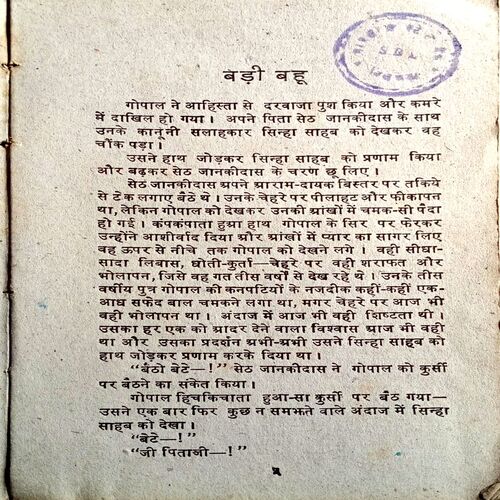 बड़ी बहू
गोपाल ने आहिस्ता से दरवाजा पुश किया और कमरे
में दाखिल हो गया। अपने पिता सेठ जानकीदास के साथ
उनके कानूनी सलाहकार सिन्हा साहब को देखकर वह
चौंक पड़ा।
उसने हाथ जोड़कर सिन्हा साहब को प्रणाम किया
और बढ़कर सेठ जानकीदास के चरण छू लिए।
सेठ जानकीदास अपने आराम-दायक बिस्तर पर तकिये
से टेक लगाए बैठे थे। उनके चेहरे पर पीलाहट और फीकापन
था, लेकिन गोपाल को देखकर उनकी आंखों में चमक-सी पैदा
हो गई। कंपकंपाता हुआ हाथ गोपाल के सिर पर फेरकर
उन्होंने आशीर्वाद दिया और आंखों में प्यार का सागर लिए
वह ऊपर से नीचे तक गोपाल को देखने लगे। वही सीधा-
सादा लिबास, धोती-कुर्ता—चेहरे पर वही शराफत और
भोलापन, जिसे वह गत तीस वर्षों से देख रहे थे। उनके तीस
वर्षीय पुत्र गोपाल की कनपटियों के नजदीक कहीं-कहीं एक-
आध सफेद बाल चमकने लगा था, मगर चेहरे पर आज भी
वही भोलापन था। अंदाज में आज भी वही शिष्टता थी।
उसका हर एक को आदर देने वाला विश्वास आज भी वही
था और उसका प्रदर्शन अभी-अभी उसने सिन्हा साहब को
हाथ जोड़कर प्रणाम करके दिया था।
“बैठो बेटे—!” सेठ जानकीदास ने गोपाल को कुर्सी
पर बैठने का संकेत किया।
गोपाल हिचकिचाता हुआ-सा कुर्सी पर बैठ गया—
उसने एक बार फिर कुछ न समझते वाले अंदाज में सिन्हा
साहब को देखा।
“बेटे—!”
“जी पिताजी—!”